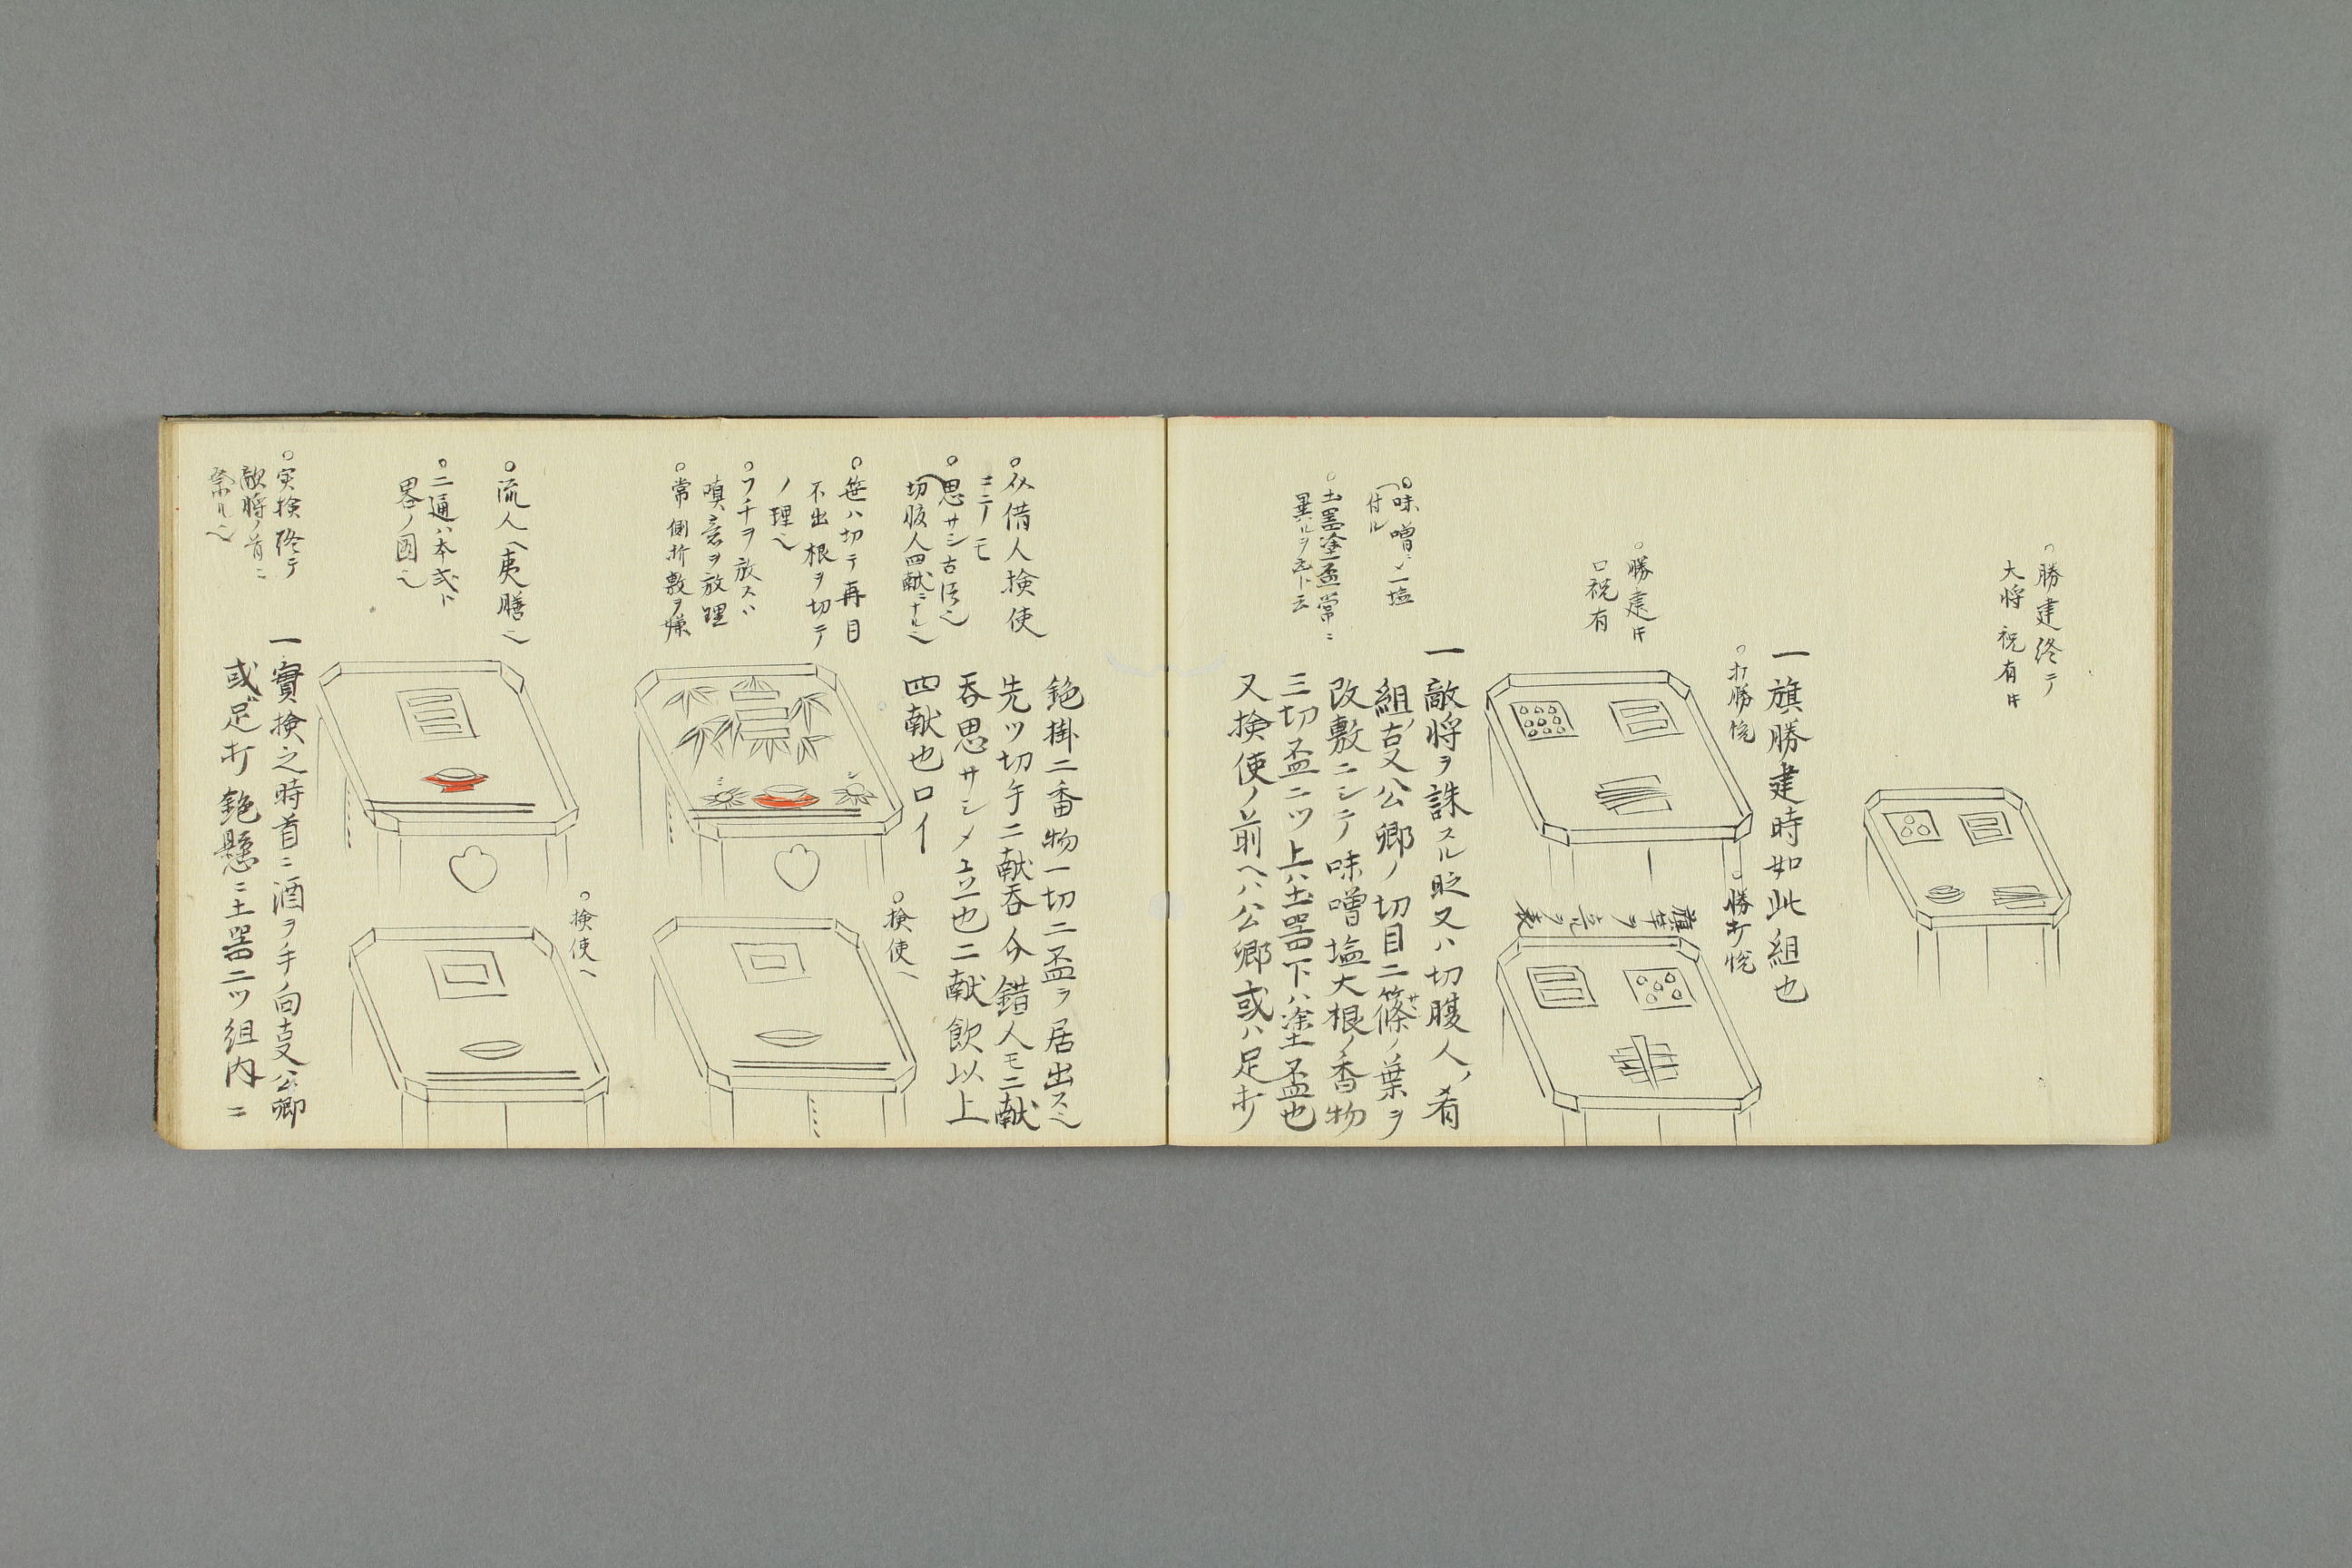 ○勝建終テ
大将祝有㕝
一旗勝建時如此組也
○打勝悦
○勝打悦
○勝建㕝
口祝有
旗竿ヲ立ルヲ表
一敵将ヲ誅スル時又ハ切腹人ノ肴
組ノ古又公卿ノ切目ニ篠ノ葉ヲ
改敷ニシテ味噌塩大根ノ香物
三切盃二ツ上ハ土器下ハ塗盃也
又検使ノ前ヘハ公卿或ハ足打
○味噌ニ〆塩
付ル
○土器塗盃常ニ
異ルヲ忌ト云
絶掛ニ香物一切ニ盃ヲ居出ス也
先ツ切手二献呑介錯人モ二献
呑思サシメ立也二献飲以上
四献也口イ
○介借人検使
ニテモ
○思サシ古法也
切腹人四献ニナル也
○笹ハ切テ再目
不出根ヲ切テ
ノ理也
○フチヲ放スハ
嗔恚ヲ放理
○常側折敷ヲ嫌
○検使ヘ
○流人ヘ夷膳也
○二通ハ本式ト
畧ノ図也
○検使ヘ
○実検終テ
敵将ノ首ニ
祭ル也
一實検之時首ニ酒ヲ手ノ向支公卿
或足打絶懸ニ土器二ツ組内ニ